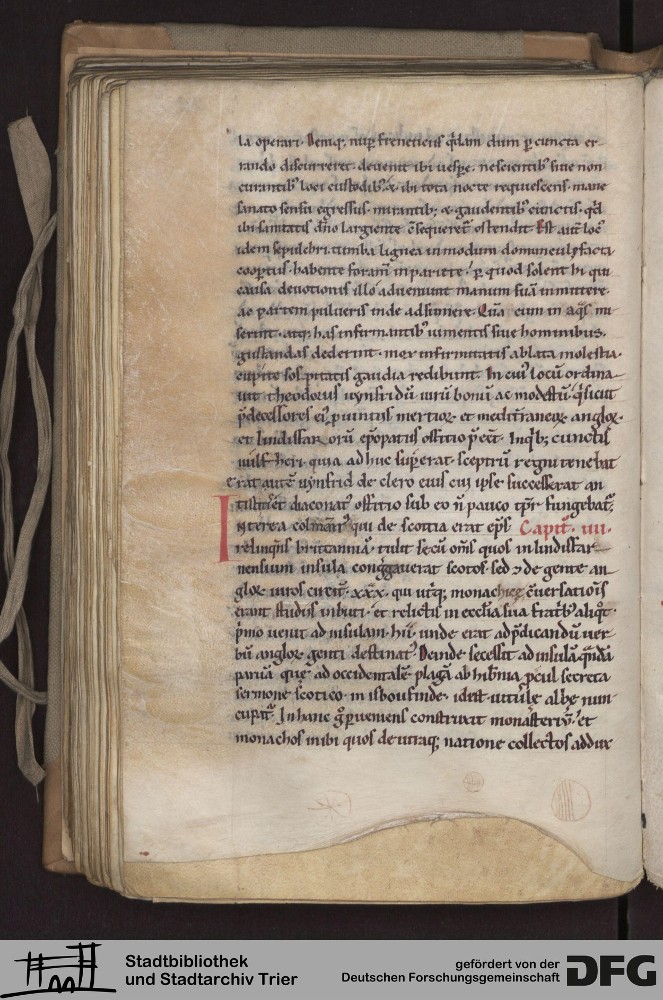 la operari. Deniq; nup̄ freneticus q̄dam dum ꝑ cuncta er-
rando discurreret. devenit ibi uesꝑe. nescientib' siue non
curantib' loci custodib'. & ibi tota nocte requiescens. mane
sanato sensu egressus. mirantib; & gaudentib' cunctis. qd
ibi sanitatis dn̄o largiente c̄sequeret' ostendit. Est aut̄ loc'
idem sepulchri. tumba lignea in modum domunculę facta
coopertus. habente foram̄ in pariete. ꝑ quod solent hi qui
causa devotionis illo adveniunt manum suā inmittere.
ac partem pulueris inde adsumere. Quā cum in aq̄s mi
serint. atq; has infirmantib' iumentis siue hominibus.
gustandas dederint. mox infirmitatis ablata molestia.
cupite sospitatis gaudia redibunt. In cui' locū ordina
uit theodorus uynfridū uirū bonū ac modestū. q̄ sicut
p̄decessores ei' ꝓuintiis mertiorꝝ et mediterraneorꝝ anglorꝝ.
et lindissfarorū ep̄opatus offitio p̄eēt. Inqb; cunctis
uulfheri. quia adhuc suꝑerat. sceptrū regni tenebat
Erat autē uynfrid de clero eius cui ipse successerat an
tistitis et diaconat' offitio sub eo n̄ pauco tp̄r fungebat'.
Interea colmān' qui de scottia erat ep̄s Capit'. iiii.
relinq̄ns brittanniā. tulit secū om̄s quos in lindissfar-
nensium insula congregauerat scotos. sed & de gente an
glorꝝ uiros circit'. xxx. qui utq; monachicę c̄versationis
erant studiis inbuti. et relictis in eccl̄ia sua fratrib' aliq̄t.
p̄mo uenit ad insulam. hii. unde erat ad p̄dicandū uer
bū anglorꝝ genti destinat'. Deinde secessit ad insulā quandā
paruā que ad occidentalē plagā ab hib̄nia ꝓcul secreta
sermone scotico. inisboufinde. idest. uitule albę nun
cupat'. In hanc g̊ ꝑueniens construxit monasteriū. et
monachos inibi quos de utraq; natione collectos addux
Stadtbibliothek
und Stadtarchiv Trier
gefördert von der
Deutschen Forschungsgemeinschaft
DFG